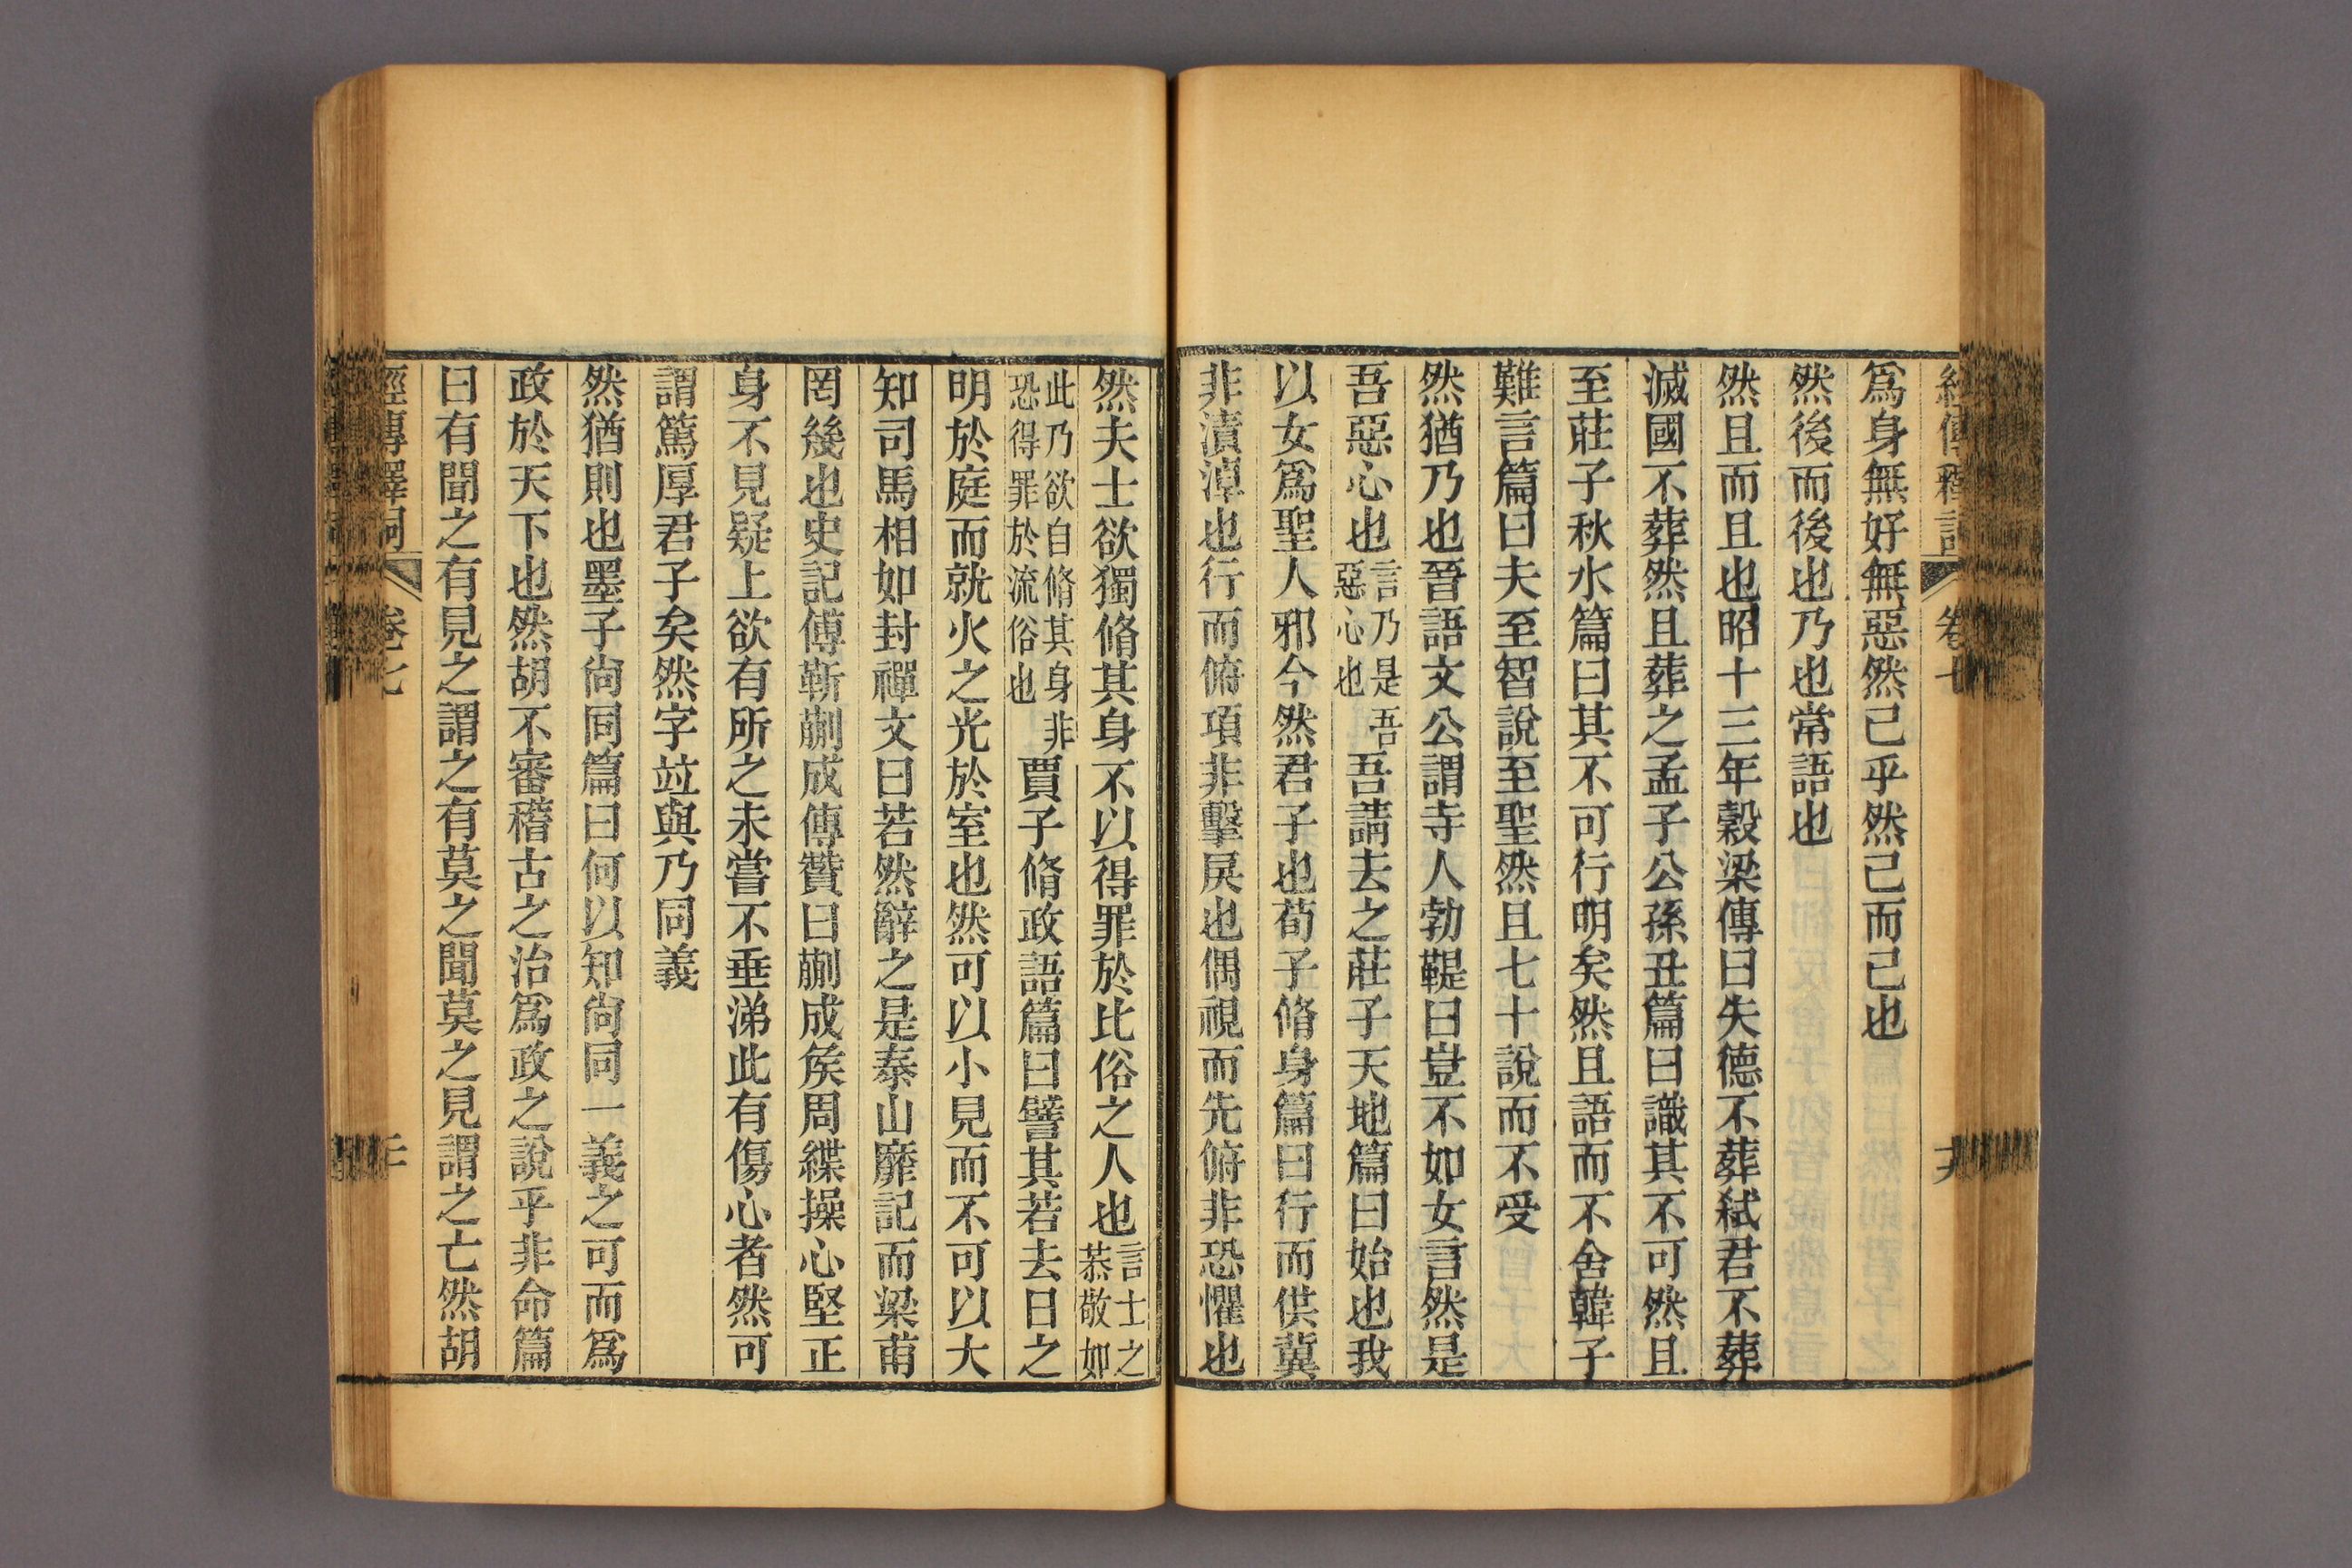 經傳釋詞 卷七 十九
爲身無好無惡然己乎然己而己也
然後而後也乃也常語也
然且而且也昭十三年穀梁傳曰失德不葬弑君不葬
滅國不葬然且葬之孟子公孫丑篇曰識其不可然且
至莊子秋水篇曰其不可行明矣然且語而不舍韓子
難言篇曰夫至智說至聖然且七十說而不受
然猶乃也晉語文公謂寺人勃鞮曰豈不如女言然是
吾惡心也言乃是吾惡心也吾請去之莊子天地篇曰始也我
以女爲聖人邪今然君子也荀子脩身篇曰行而供冀
非漬淖也行而俯項非擊戾也偶視而先俯非恐懼也
然夫士欲獨脩其身不以得罪於比俗之人也言士之恭敬如
此乃欲自脩其身非恐得罪於流俗也賈子脩政語篇曰譬其若去日之
明於庭而就火之光於室也然可以小見而不可以大
知司馬相如封禪文曰若然辭之是泰山靡記而梁甫
罔幾也史記傅靳蒯成傳贊曰蒯成矦周緤操心堅正
身不見疑上欲有所之未嘗不垂涕此有傷心者然可
謂篤厚君子矣然字竝與乃同義
然猶則也墨子尙同篇曰何以知尙同一義之可而爲
政於天下也然胡不審稽古之治爲政之說乎非命篇
曰有聞之有見之謂之有莫之聞莫之見謂之亡然胡
經傳釋詞 卷七 二十